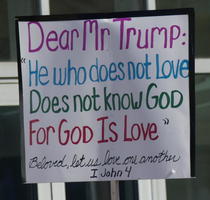 Dear Mr Trump:
"He who does not Love
Does not know GOD
For GOD Is Love"
Beloved, let us love one another
I John 4